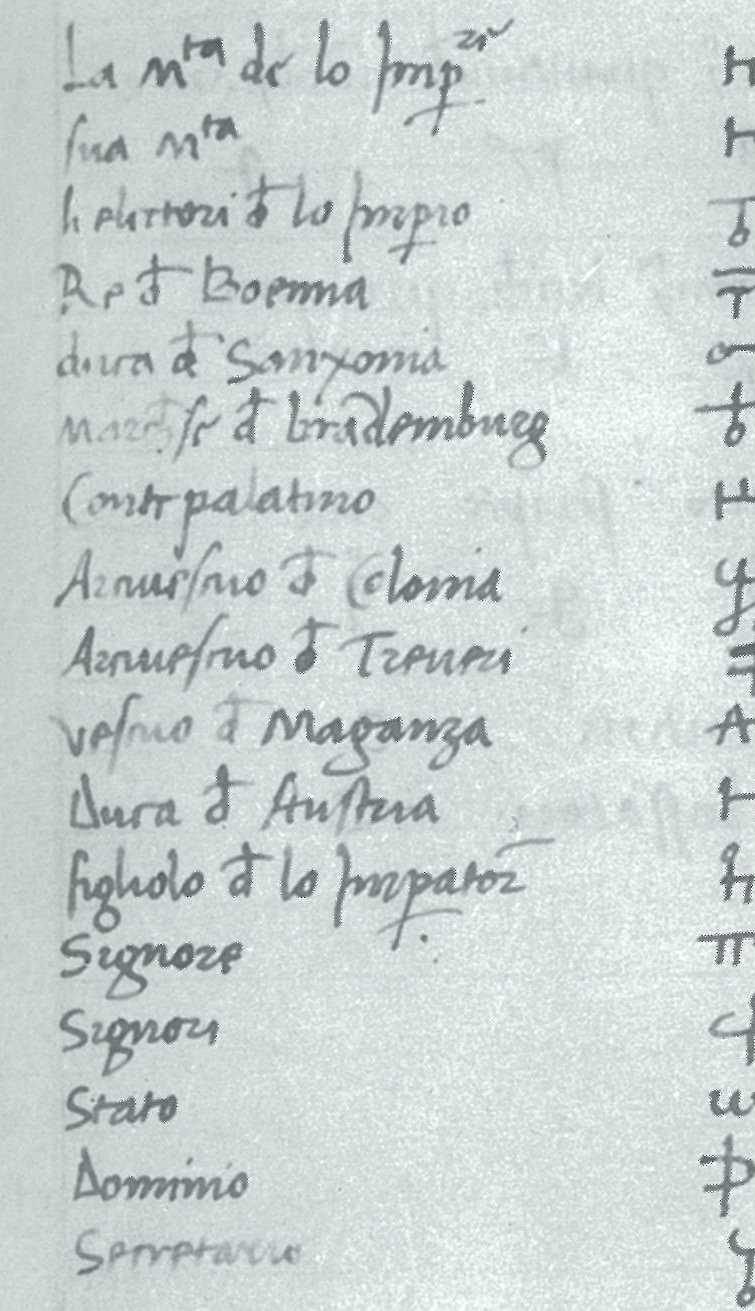 La M.ta de lo Imp.re
sua M.ta
li electori d lo Impio
Re d Boemia
duca d Sanxonia
d Brademburg
Conte palatino
Arcivescuo d Colonia
Arcivescuo d Treveri
vescuo d Maganza
Duca d Austria
figliolo d lo Impator
Signore
Signori
Stato
Dominio
Secretario